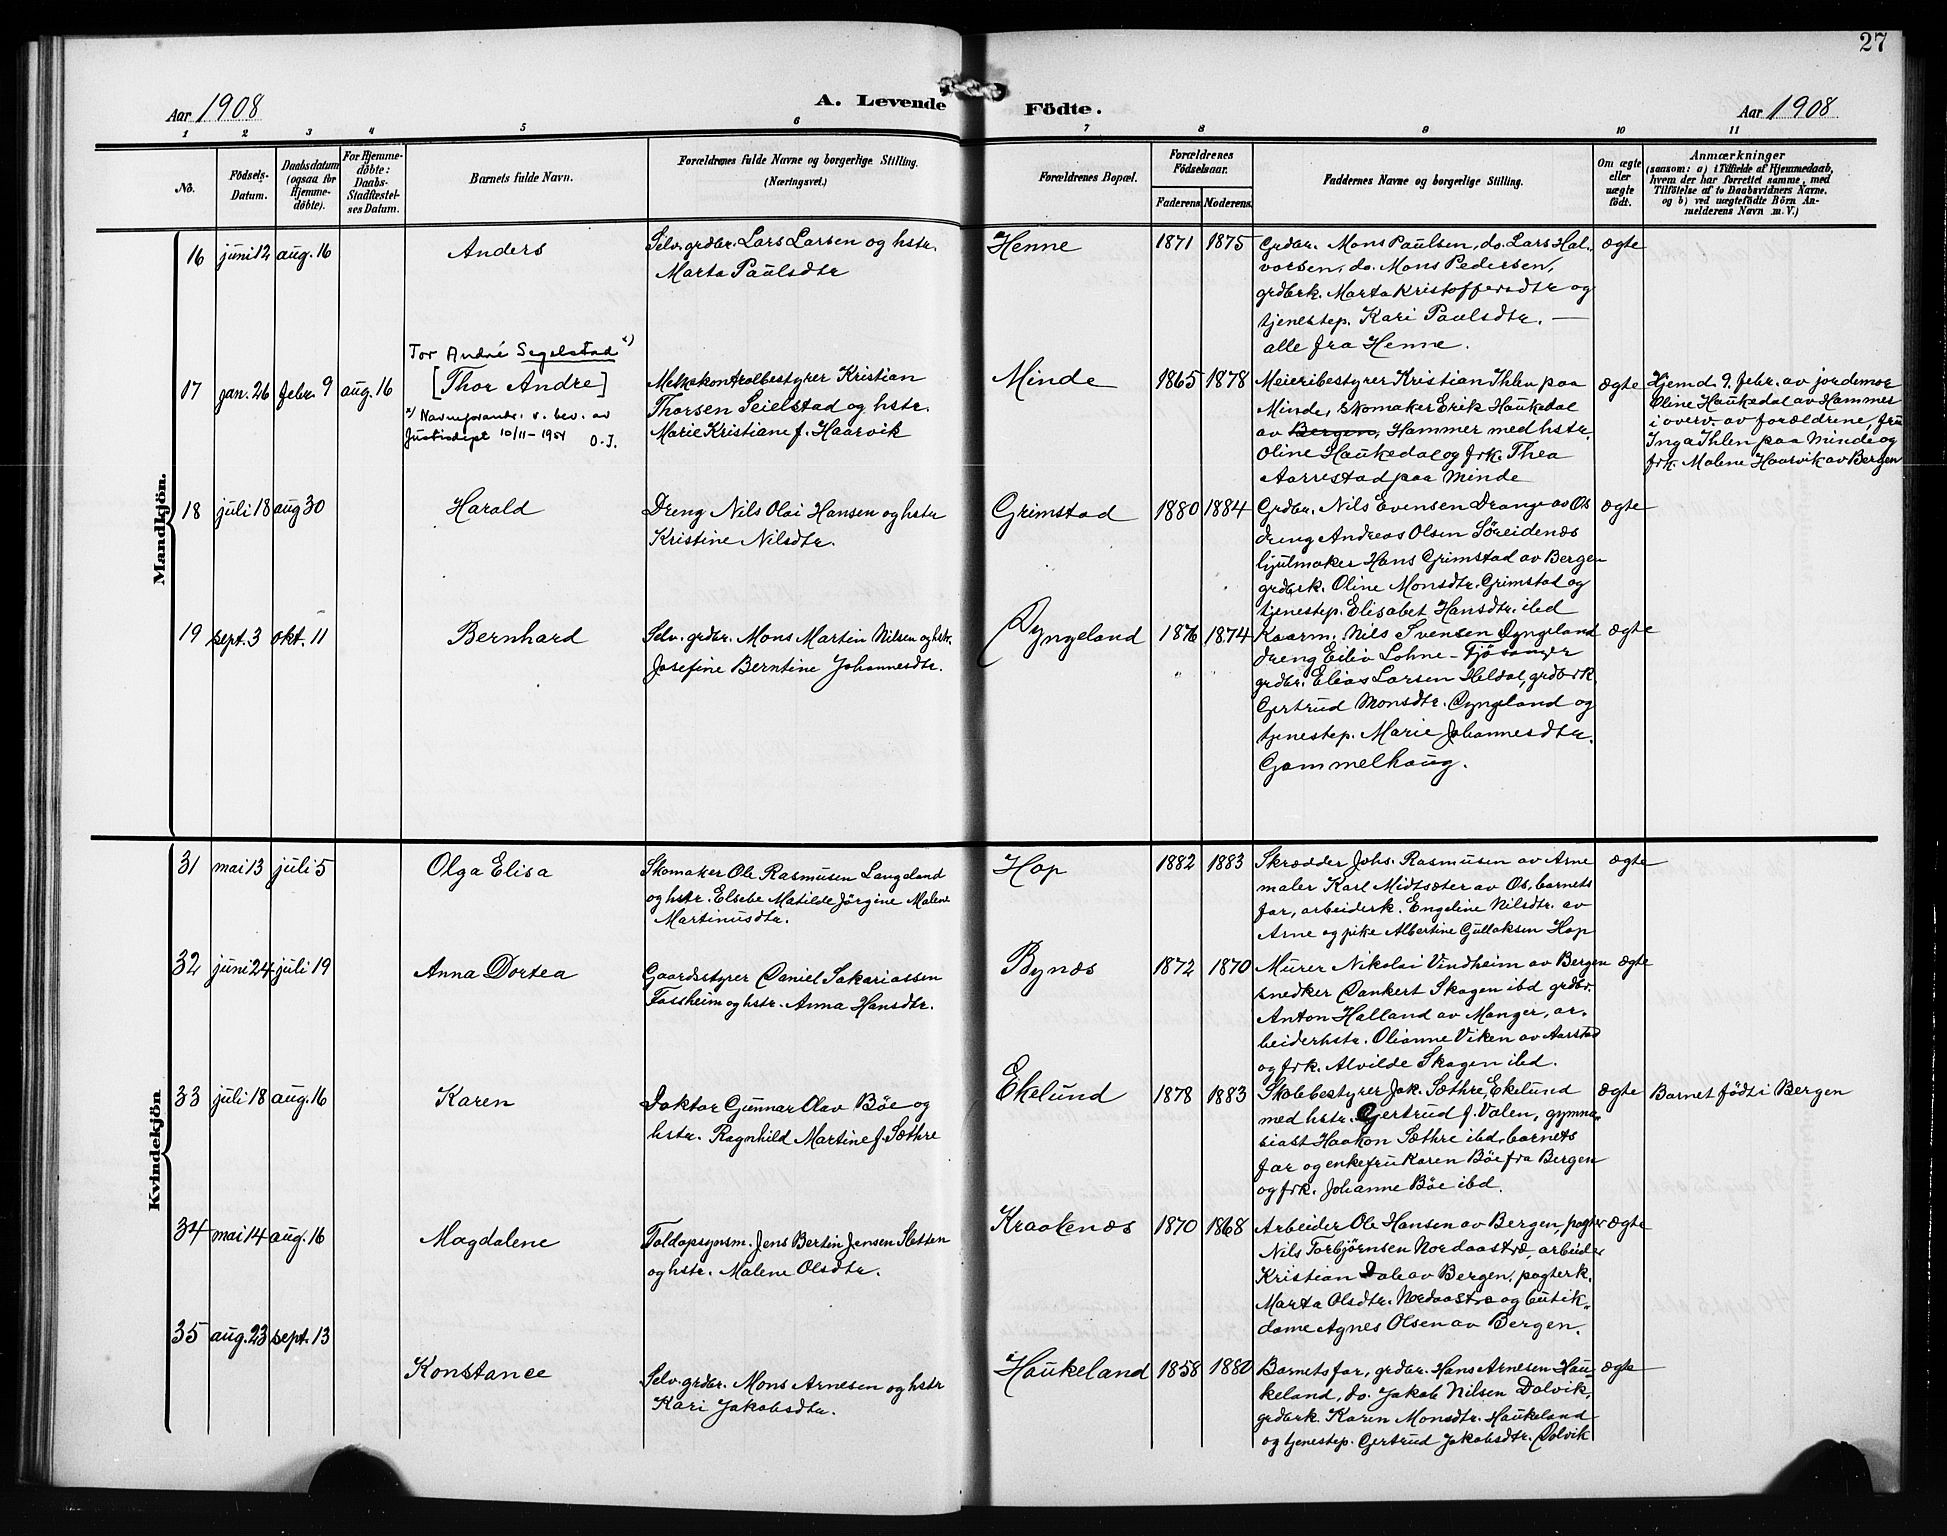 27
Aar 1908
A. Levende Födte.
Aar 1908
1 2 3 4 5 6 7 8 9 10 11
No.
Födsels-
Datum.
Daabsdatum
(ogsaa for
Hjemme-
döbte).
For Hjemme-
döbte:
Daabs-
Stadfæstel-
ses Datum.
Barnets fulde Navn.
Forældrenes fulde Navne og borgerlige Stilling.
(Næringsvei.)
Forældrenes Bopæl.
Forældrenes
Födselsaar.
Faderens Moderens.
Faddernes Navne og borgerlige Stilling.
Om ægte
eller
uægte
födt.
Anmærkninger
(saasom: a) i Tilfælde af Hjemmedaab,
hvem der har forrettet samme, med
Tilföielse af to Daabsvidners Navne.
og b) ved uægtefödte Börn An-
melderens Navn m. V.)
Mandkjön.
16 juni 12 aug. 16
Anders
Selv. grdbr. Lars Larsen og hstr.
Marta Paulsdtr
Henne
1871 1875
Grdbr. Mons Paulsen, do. Lars Hal-
vorsen, do. Mons Pedersen,
grdbrk. Marta Kristoffersdtr og
tjenestep. Kari Paulsdtr. —
alle fra Henne.
ægte
17 jan. 26 febr. 9 aug. 16
Tor André Segelstad x)
[Thor Andre]
x) Navneforandr. v. bev. av
Justisdept 10/11-1954 O.J.
Melkekontrolbestyrer Kristian
Thorsen Seielstad og hstr.
Marie Kristiane f. Haarvik
Minde
1865 1878
Meieribestyrer Kristian Ihlen paa
Minde, skomaker Erik Haukedal
av Bergen, Hammer med hstr.
Oline Haukedal og frk. Thea
Aarrestad paa Minde
ægte
Hjemd. 9. febr. av jordemor
Oline Haukedal av Hammer
i overv. av forældrene, fru
Inga Ihlen paa Minde og
frk. Malene Haarvik av Bergen
18 juli 18 aug 30
Harald
Dreng Nils Olai Hansen og hstr
Kristine Nilsdtr.
Grimstad
1880 1884
Grdbr. Nils Evensen Drange av Os
dreng Andreas Olsen Søreidenæs
hjulmaker Hans Grimstad av Bergen
grdbrk. Oline Monsdtr. Grimstad og
tjenestep. Elisabet Hansdtr. ibd
ægte
19 sept. 3 okt. 11
Bernhard
Selv. grdbr. Mons Martin Nilsen og hstr.
Josefine Berntine Johannesdtr.
Dyngeland
1876 1874
Kaarm. Nils Svensen Dyngeland
dreng Eiliv Lohne - Fjøsanger
grdbr. Elias Larsen Heldal, grdbrk.
Gertrud Monsdtr. Dyngeland og
tjenestep. Marie Johannesdtr.
Gammelhaug.
ægte
Kvindekjön
31 mai 13 juli 5
Olga Elisa
Skomaker Ole Rasmusen Langeland
og hstr. Elsebe Matilde Jørgine Malene
Martinusdtr.
Hop
1882 1883
Skrædder Johs. Rasmusen av Arne
maler Karl Midtsæter av Os, barnets
far, arbeiderk. Engeline Nilsdtr. av
Arne og pike Albertine Gullaksen Hop
ægte
32 juni 24 juli 19
Anna Dortea
Gaardsstyrer Daniel Sakariassen
Tassheim og hstr. Anna Hansdtr.
Bynæs
1872 1870
Murer Nikolai Vindheim av Bergen
snedker Dankert Skagen ibd grdbr.
Anton Halland av Manger, ar-
beiderhstr. Olianne Viken av Aarstad
og frk. Alvilde Skagen ibd.
ægte
33 juli 18 aug. 16
Karen
Doktor Gunnar Olav Böe og
hstr. Ragnhild Martine f. Sæthre
Ekelund
1878 1883
Skolebestyrer Jak. Sæthre, Ekelund
med hstr. Gertrud f. Valen, gymna-
siast Haakon Sæthre ibd, barnets
far og enkefru Karen Böe fra Bergen
og frk. Johanne Böe ibd.
ægte
Barnet født i Bergen
34 mai 14 aug. 16
Magdalene
Toldopsynsm. Jens Bertin Jensen Sletten
og hstr. Malene Olsdtr.
Kraakenæs
1870 1868
Arbeider Ole Hansen av Bergen, pagter
Nils Torbjørnsen Nordaastræ, arbeider
Kristian Dale av Bergen, pagterk.
Marta Olsdtr. Nordaastræ og butik-
dame Agnes Olsen av Bergen.
ægte
35 aug. 23 sept. 13
Konstance
Selv. grdbr. Mons Arnesen og hstr
Kari Jakobsdtr.
Haukeland
1858 1880
Barnets far, grdbr. Hans Arnesen Hau-
keland, do. Jakob Nilsen Dalvik,
grdbrk. Karen Monsdtr. Haukeland
og tjenestep. Gertrud Jakobsdtr. Dalvik
ægte